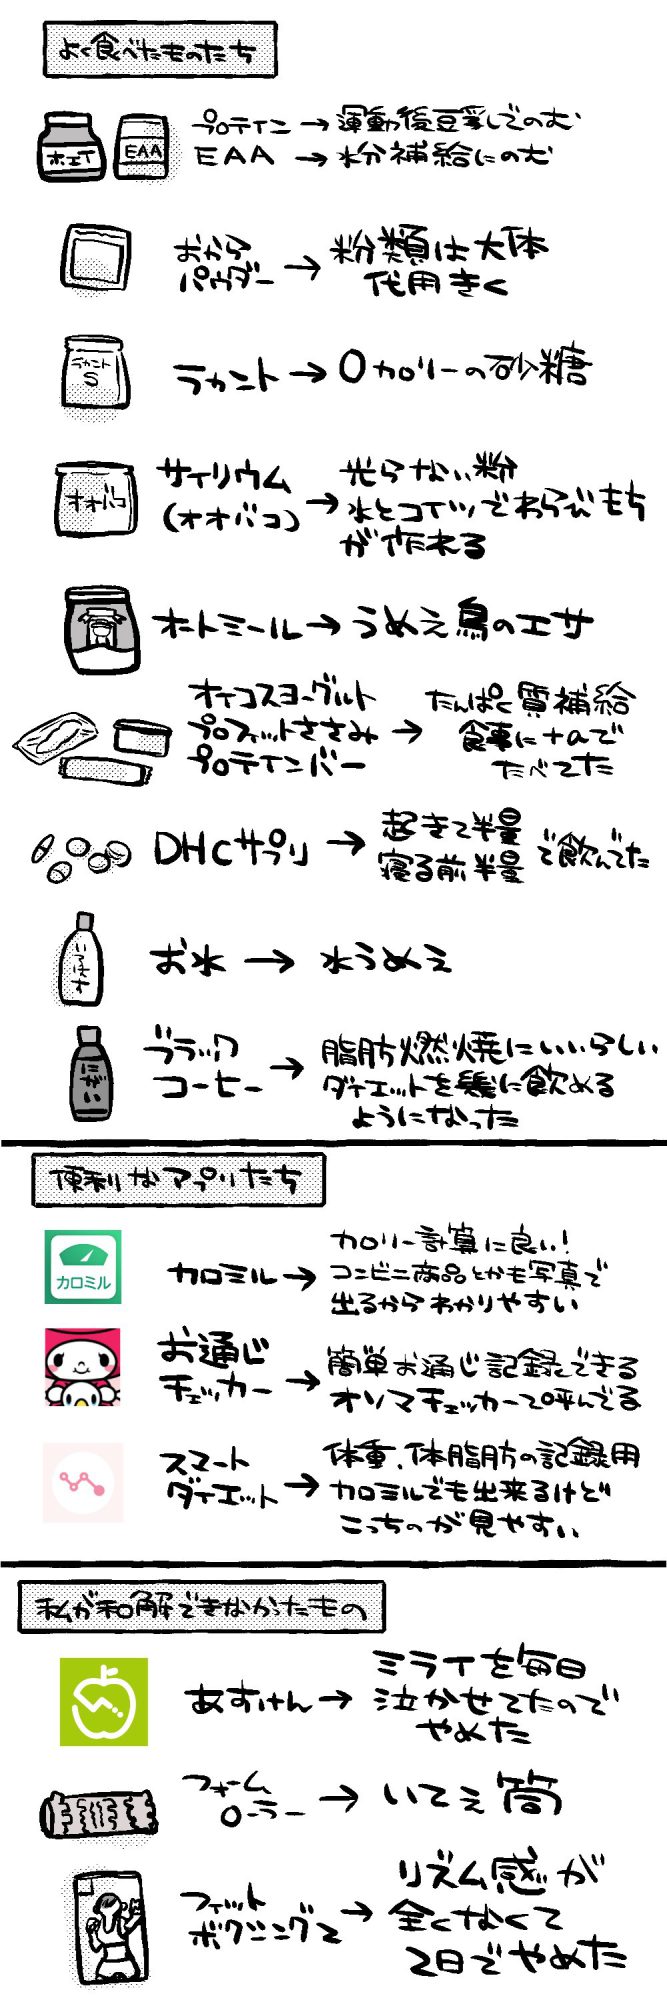 よく食べたものたち
ホエイ
EAA
プロテイン→運動後豆乳でのむ
EAA→水分補給にのむ
おから
パウダー→
粉類は大体
代用きく
ラカント
S
ラカント→0カロリーの砂糖
オオバコ
サイリウム
(オオバコ)→
光らない粉
水とコイツでわらびもち
が作れる
オートミール→うめえ鳥のエサ
オイコスヨーグルト
プロフィットささみ→
プロテインバー
たんぱく質補給
食事に+αで
たべてた
DHCサプリ→
起きて半量
寝る前半量
で飲んでた
いろはす
お水→水うめえ
にがい
ブラック
コーヒー→
脂肪燃焼にいいらしい
ダイエットを機に飲める
ようになった
便利なアプリたち
カロミル
カロミル→
カロリー計算に良い!
コンビニ商品とかも写真で
出るからわかりやすい
お通じ
チェッカー→
簡単お通じ記録できる
オソマチェッカーって呼んでる
スマート
ダイエット→
体重、体脂肪の記録用
カロミルでも出来るけど
こっちのが見やすい
私が和解できなかったもの
あすけん→
ミライを毎日
泣かせてたので
やめた
フォーム
ローラー→
いてえ筒
フィット
ボクシング2→
リズム感が
全くなくて
2日でやめた